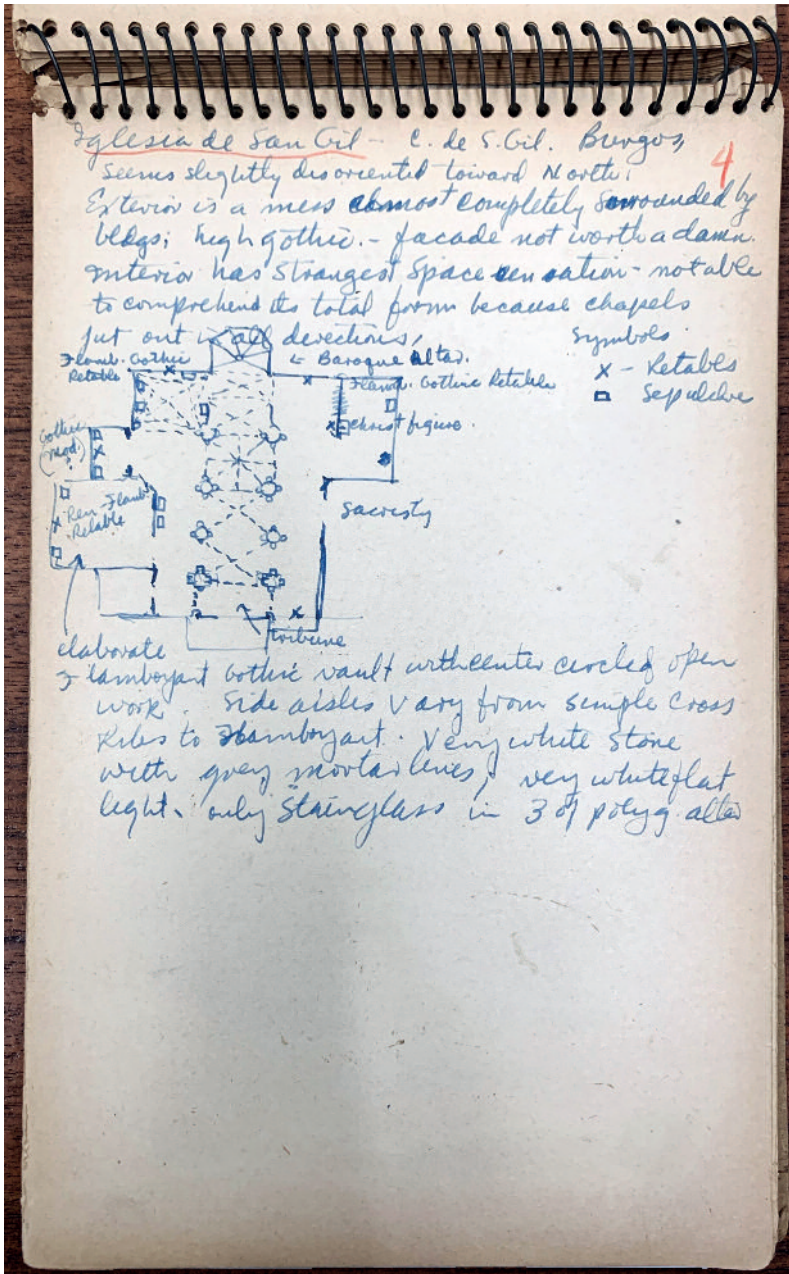 Iglesia de San Gil - C. de S. Gil. Burgos,
4
Seems slightly disoriented toward North.
Exterior is a mess almost completely surrounded by
bldgs; high gothic. - facade not worth a damn.
Interior has strangest space sensation - not able
to comprehend its total form because chapels
jut out in all directions,
Symbols
X - Retables
Sepulchre
Flamb. Gothic
Retable
← Baroque Altar.
Flamb. Gothic Retable
Christ figure.
Gothic
(mod.)
?
Ren-Flamb
Retable
Sacristy
tribune
elaborate
Flamboyant Gothic vault with center circle of open
work. Side aisles vary from simple cross
ribs to Flamboyant. Very white stone
with grey mortar lines, very white flat
light. only stainglass in 3 of polyg. altar